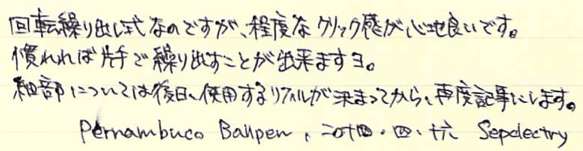 回転繰り出し式なのですが、程度なクリック感が心地良いです。
慣れれば片手で繰り出すことが出来ますヨ。
細部については後日、使用するリフィルが決まってから、再度記事にします。
Pernambuco Ballpen, 二十四・四・十六 Sepdectry